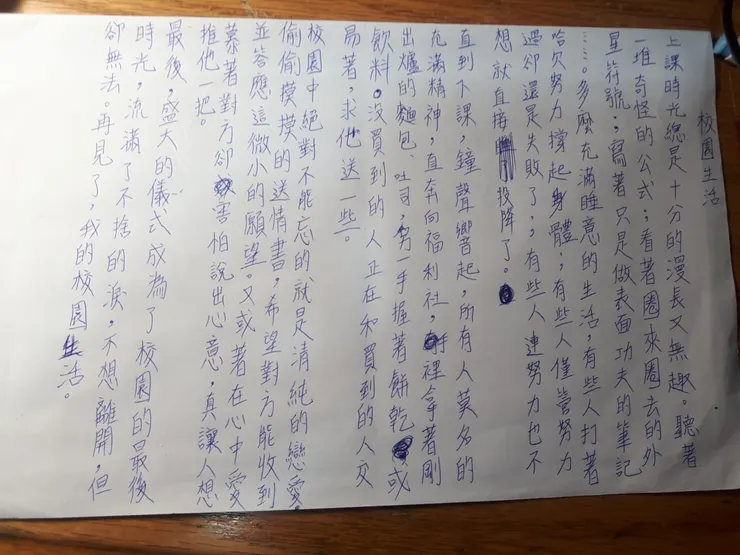 校園生活
上課時光總是十分的漫長又無趣。聽著
一堆奇怪的公式;看著圈來圈去的外
星符號;寫著只是做表面功夫的筆記
……。多麼充滿睡意的生活,有些人打著
哈欠努力撐起身體;有些人僅管努力
過卻還是失敗了;有些人連努力也不
想就直接投降了。
直到下課,鐘聲響起,所有人莫名的
充滿精神,直奔向福利社,裡拿著剛
出爐的麵包、吐司,另一手握著餅乾或
飲料。沒買到的人正在和買到的人交
易著,求他送一些。
校園中絕對不能忘的就是清純的戀愛。
偷偷摸摸的送情書,希望對方能收到
並答應這微小的願望。又或著在心中愛
慕著對方卻害怕說出心意,真讓人想
推他一把。
最後,盛大的儀式成為了校園的最後
時光,流滿了不捨的淚,不想離開,但
卻無法。再見了,我的校園生活。